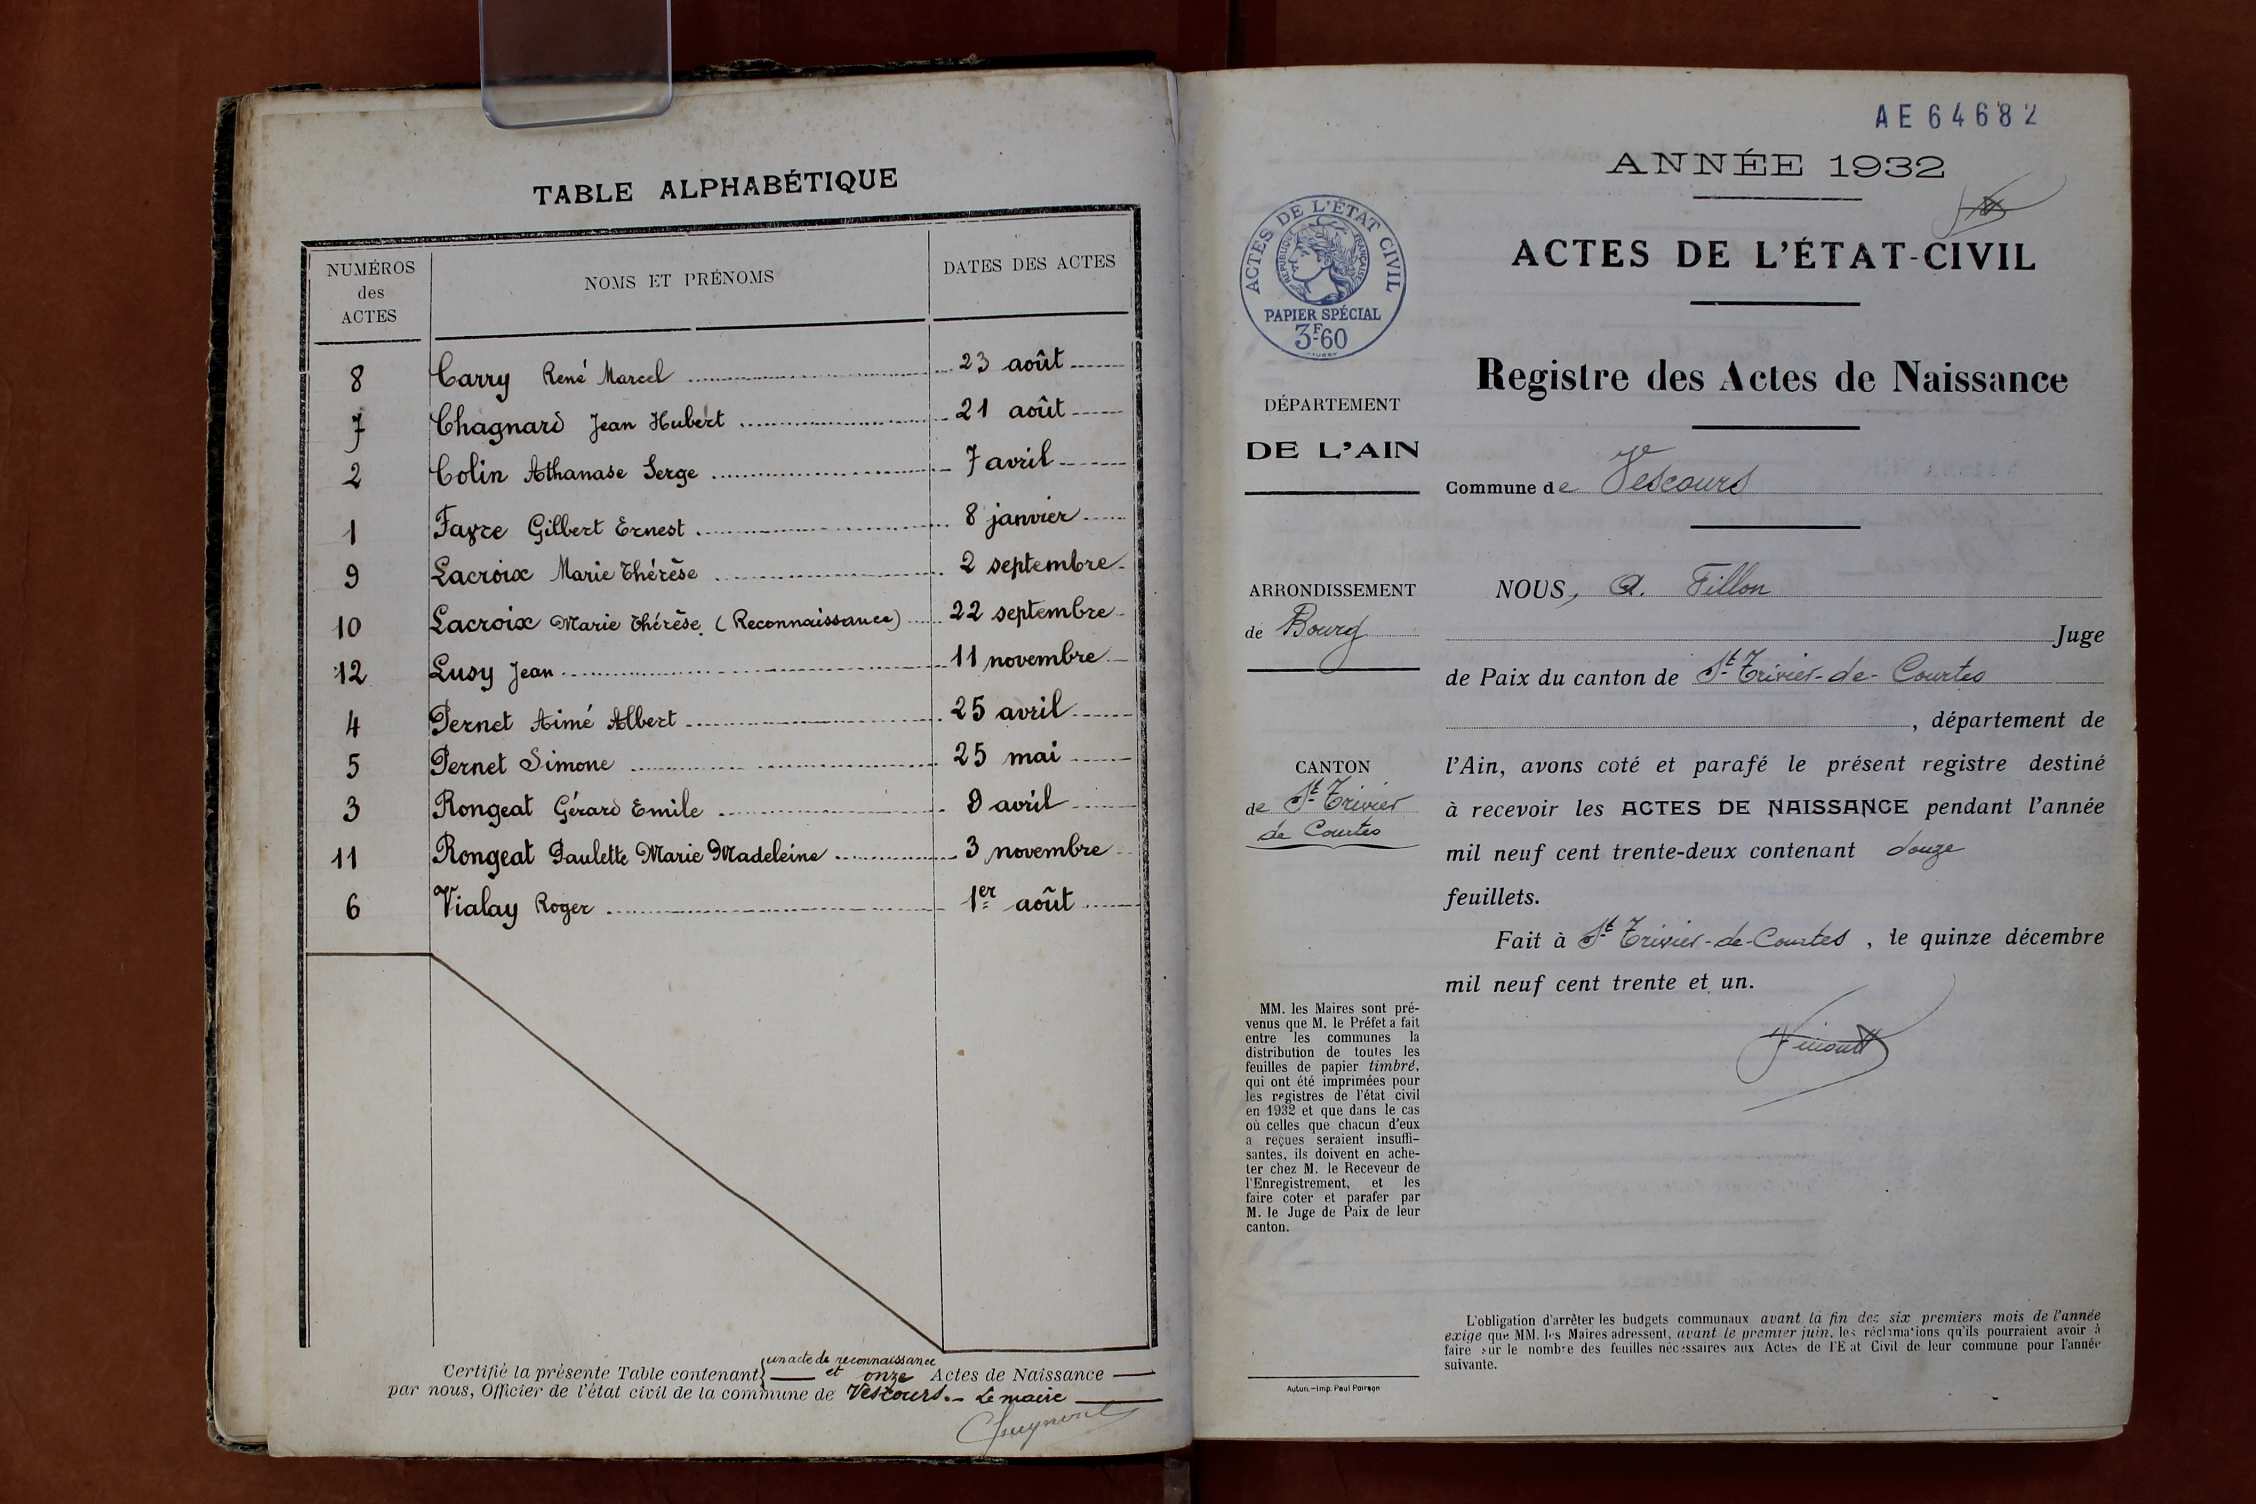 TABLE ALPHABÉTIQUE
NUMÉROS des ACTES
NOMS ET PRÉNOMS
DATES DES ACTES
8 Carry René Marcel 23 août
7 Chagnard Jean Hubert 21 août
2 Colin Athanase Serge 7 avril
1 Fayre Gilbert Ernest 8 janvier
9 Lacroix Marie Thérèse 2 septembre
10 Lacroix Marie Thérèse. (Reconnaissance) 22 septembre
12 Lusy Jean 11 novembre
4 Pernet Aimé Albert 25 avril
5 Pernet Simone 25 mai
3 Rongeat Gérard Emile 9 avril
11 Rongeat Paulette Marie Madeleine 3 novembre
6 Vialay Roger 1er août
un acte de reconnaissance
Certifié la présente Table contenant et onze Actes de Naissance
par nous, Officier de l'état civil de la commune de Vescours. - Le maire
AE64682
ANNÉE 1932
ACTES DE L'ÉTAT CIVIL
RÉPUBLIQUE FRANÇAISE
PAPIER SPÉCIAL
3F.60
ACTES DE L'ÉTAT-CIVIL
Registre des Actes de Naissance
DÉPARTEMENT
DE L'AIN
Commune de Vescours
ARRONDISSEMENT
de Bourg
NOUS, A. Fillon
Juge
de Paix du canton de St-Trivier-de-Courtes
, département de
CANTON
de St-Trivier
de Courtes
l'Ain, avons coté et parafé le présent registre destiné
à recevoir les ACTES DE NAISSANCE pendant l'année
mil neuf cent trente-deux contenant douze
feuillets.
Fait à St-Trivier-de-Courtes, le quinze décembre
mil neuf cent trente et un.
MM. les Maires sont pré-
venus que M. le Préfet a fait
entre les communes la
distribution de toutes les
feuilles de papier timbré,
qui ont été imprimées pour
les registres de l'état civil
en 1932 et que dans le cas
où celles que chacun d'eux
a reçues seraient insuffi-
santes, ils doivent en ache-
ter chez M. le Receveur de
l'Enregistrement, et les
faire coter et parafer par
M. le Juge de Paix de leur
canton.
L'obligation d'arrêter les budgets communaux avant la fin des six premiers mois de l'année
exige que MM. les Maires adressent, avant le premier juin, les réclamations qu'ils pourraient avoir à
faire sur le nombre des feuilles nécessaires aux Actes de l'Etat Civil de leur commune pour l'année
suivante.
Autun.—Imp. Paul Poirson